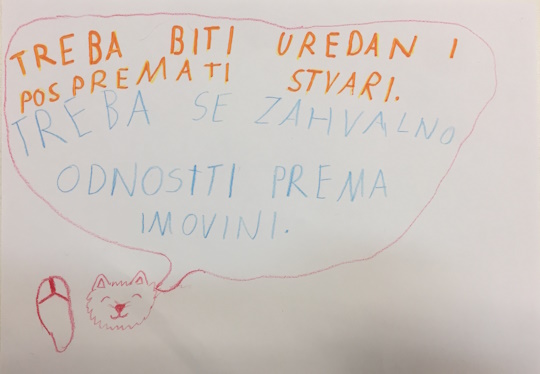 TREBA BITI UREDAN I
POSPREMATI STVARI.
TREBA SE ZAHVALNO
ODNOSITI PREMA
IMOVINI.